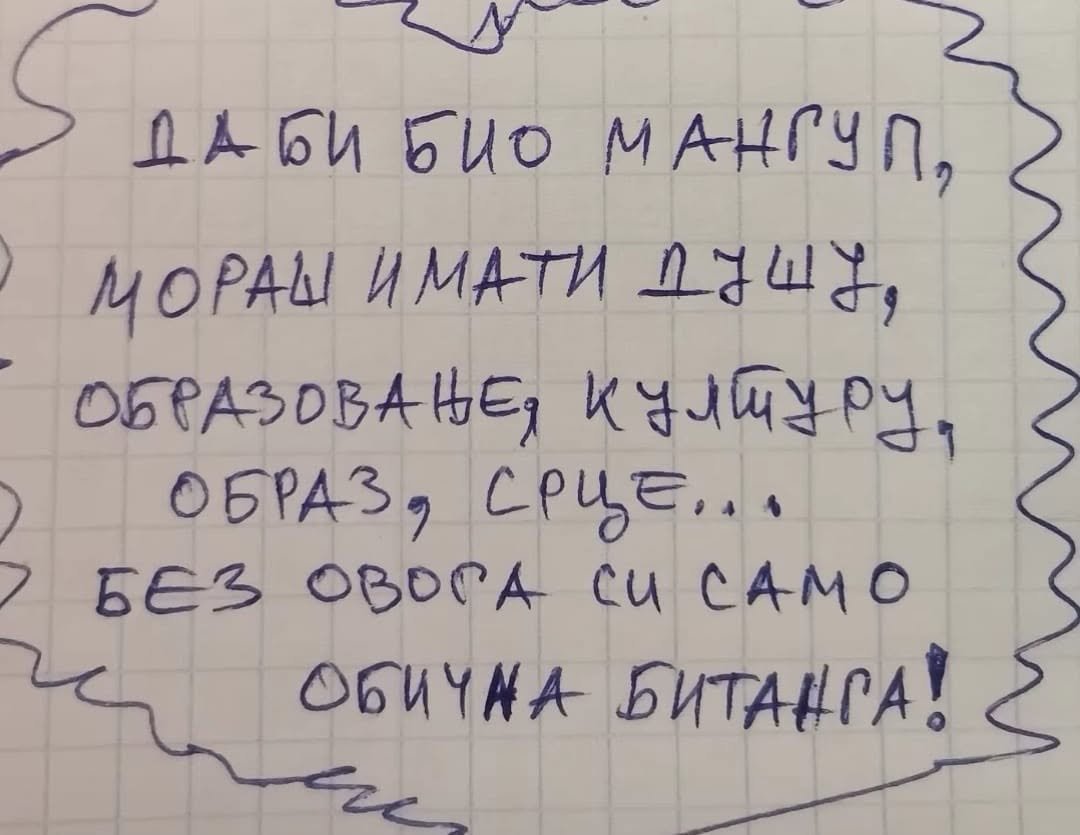 ДА БИ БИО МАНГУП,
МОРАШ ИМАТИ ДУШУ,
ОБРАЗОВАЊЕ, КУЛТУРУ,
ОБРАЗ, СРЦЕ...
БЕЗ ОВОГА СИ САМО
ОБИЧНА БИТАНГА!